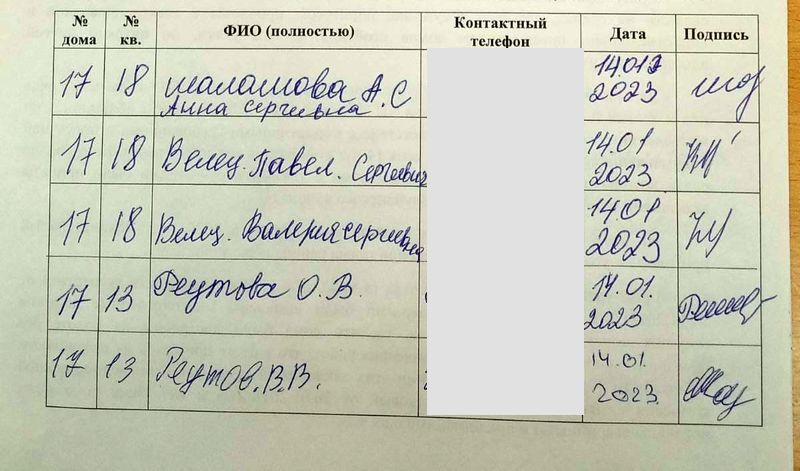 № дома № кв. ФИО (полностью) Контактный телефон Дата Подпись
17 18 шаламова А.С 14.01
Анна сергиевна 2023
17 18 Велец. Павел. Сергеевич 14.01
2023
17 18 Велец. Валерия сергиевна 14.01
2023
17 13 Реутова О.В. 14.01.
2023
17 13 Реутов.В.В. 14.01.
2023